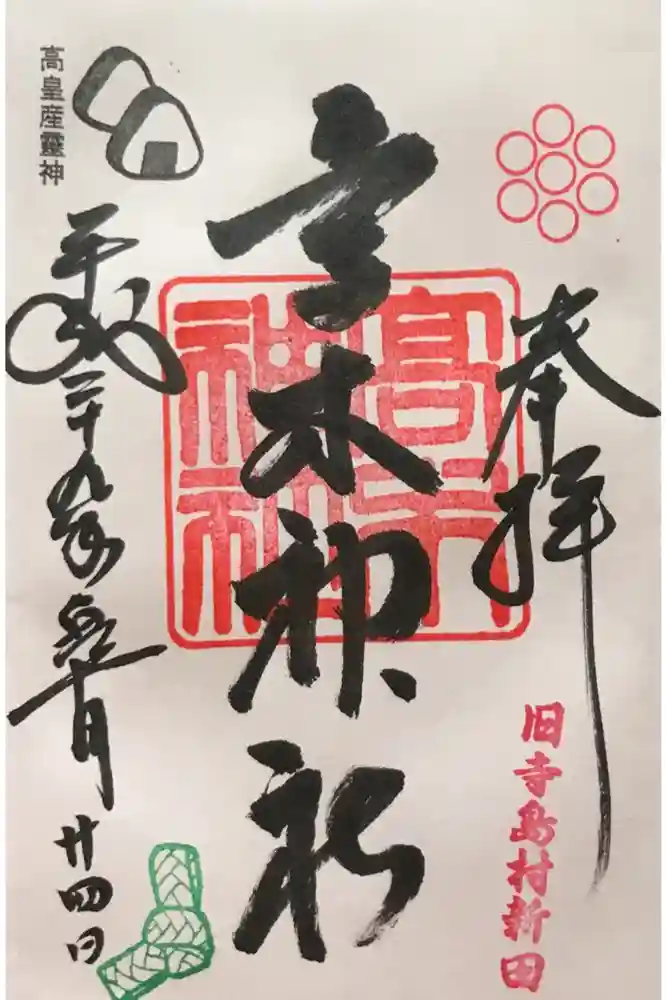 奉拝
旧寺島村新田
高木神社
高木神社
高皇産靈神
平成二十九年 月廿四日